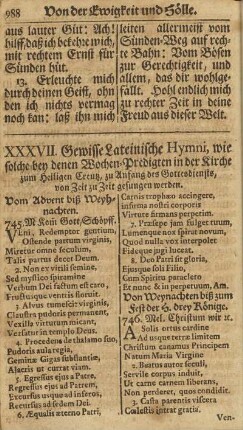 988 Von der Ewigkeit und Hölle.
aus lauter Güt: Ach!
hilff, daß ich bekehre mich,
mit rechtem Ernst für
Sünden hüt.
13. Erleuchte mich
durch deinen Geist, ohn
den ich nichts vermag
noch kan: laß ihn mich
leiten allermeist vom
Sünden-Weg auf rech-
te Bahn: Vom Bösen
zur Gerechtigkeit, und
allem, das dir wohlge-
fällt. Hohl endlich mich
zu rechter Zeit in deine
Freud aus dieser Welt.
XXXVII. Gewisse Lateinische Hymni, wie
solche bey denen Wochen-Predigten in der Kirche
zum Heiligen Creutz, zu Anfang des Gottesdiensts,
von Zeit zu Zeit gesungen werden.
Vom Advent biß Weyh-
nachten.
745. M. Gott, Schöpff.
VEni, Redemptor gentium,
Ostende partum virginis,
Miretur omne seculum,
Talis partus decet Deum.
2. Non ex virili semine,
Sed mystico spiramine
Verbum Dei factum est caro,
Fructusque ventris floruit.
3. Alvus tumescit virginis,
Claustra pudoris permanent,
Vexilla virtutum micant,
Versatur in templo Deus.
4. Procedens de thalamo suo,
Pudoris aula regia,
Geminæ Gigas substantiæ,
Alacris ut currat viam.
5. Egressus ejus a Patre,
Regressus ejus ad Patrem,
Excursus usque ad inferos,
Recursus ad sedem Dei.
6. Æqualis æterno Patri,
Carnis trophæo accingere,
infirma nostri corporis
Virtute firmans perpetim.
7. Præsepe jam fulget tuum,
Lumenque nox spirat novum,
Quod nulla vox interpolet
Fideque jugi luceat.
8. Deo Patri sit gloria,
Ejusque soli Filio,
Cum Spiritu paracleto
Et nunc & in perpetuum, Am.
Von Weynachten biß zum
Fest der H. drey Könige.
746. Mel. Christum wir ꝛc.
A Solis ortus cardine
Ad usque terræ limitem
Christum canamus Principem
Natum Maria Virgine
2. Beatus autor seculi,
Servile corpus induit,
Ut carne carnem liberans,
Non perderet, quos condidit.
3. Casta parentis viscera
Cœlestis intrat gratia,
Ven-